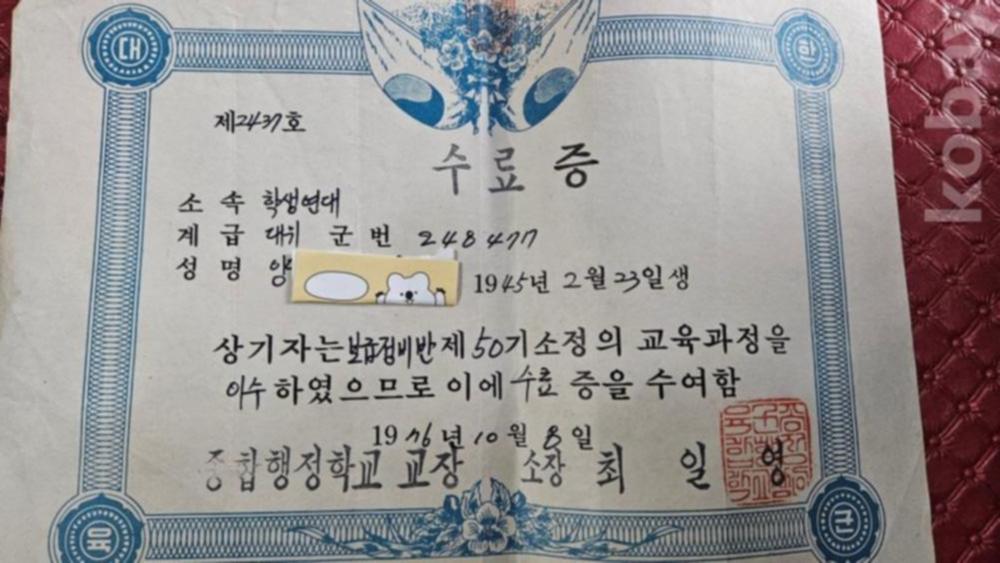 대 한
제2437호
수료증
소속 학생연대
계급 대위 군번 248477
성명 양 1945년 2월 23일생
상기자는 보급정비반 제50기 소정의 교육과정을
이수하였으므로 이에 수료증을 수여함
1976년 10월 8일
종합행정학교 교장 소장 최일영
육 군
kobay